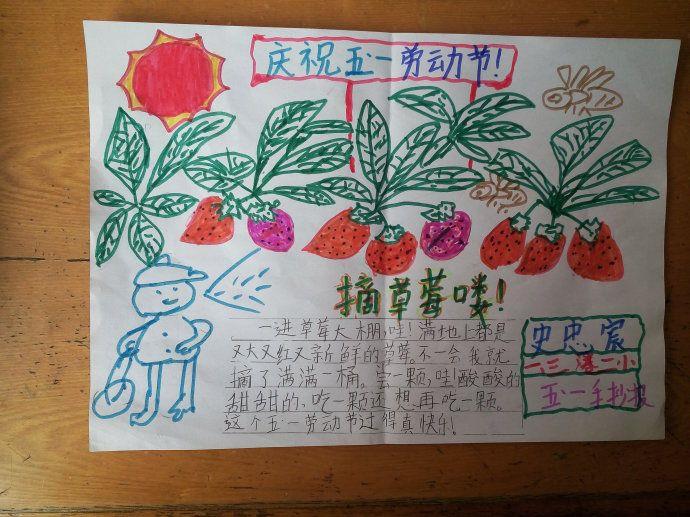 庆祝五一劳动节!
摘草莓喽!
一进草莓大棚,哇!满地上都是
又大又红又新鲜的草莓。不一会我就
摘了满满一桶。尝一颗,哇酸酸的
甜甜的、吃一颗还想再吃一颗。
这个五一劳动节过得真快乐!
史忠宸
二三 港一小
五一手抄报